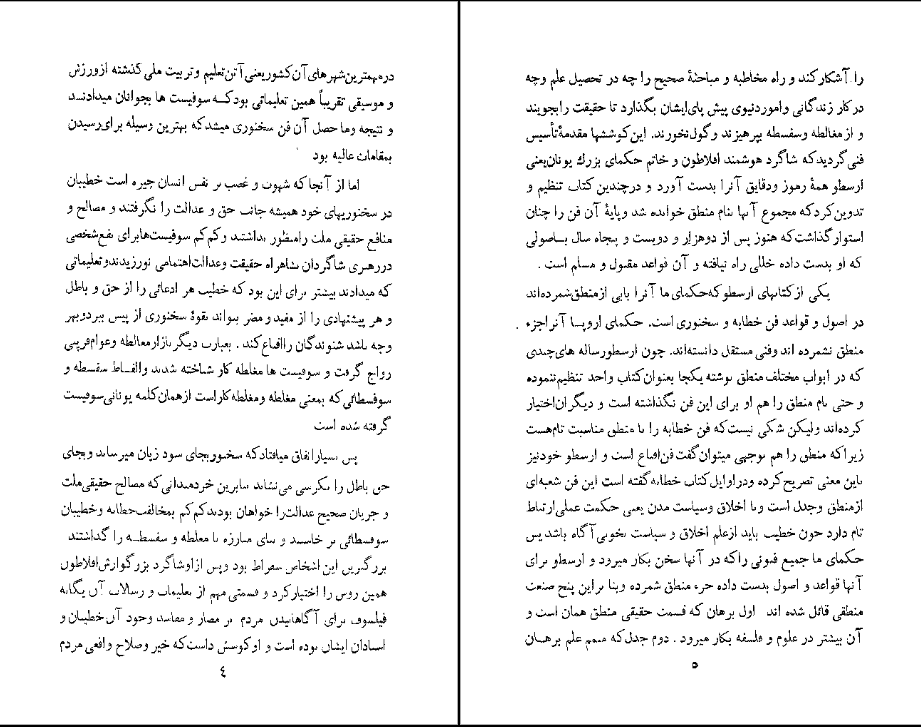 درمهمترین شهرهای آن کشوریعنی آتن تعلیم وتربیت ملی گذشته ازورزش
و موسیقی تقریباً همین تعلیماتی بود که سوفیست ها بجوانان میدادند
و نتیجه وما حصل آن فن سخنوری میشد که بهترین وسیله برای رسیدن
بمقامات عالیه بود
اما از آنجا که شهوت و غضب بر نفس انسان چیره است خطیبان
در سخنوریهای خود همیشه جانب حق و عدالت را نگرفتند و مصالح و
منافع حقیقی ملت رامنظور نداشتند و کم کم سوفیست هابرای نفع شخصی
دررهبری شاگردان بشاهراه حقیقت وعدالت اهتمامی نورزیدند وتعلیماتی
که میدادند بیشتر برای این بود که خطیب هر ادعائی را از حق و باطل
و هر پیشنهادی را از مفید و مضر بتواند بقوهٔ سخنوری از پیش ببرد وبهر
وجه باشد شنوندگان رااقناع کند . بعبارت دیگر بازارمغالطه وعوامفریبی
رواج گرفت و سوفیست ها مغلطه کار شناخته شدند والفاظ سفسطه و
سوفسطائی که بمعنی مغلطه ومغلطه کار است ازهمان کلمه یونانی سوفیست
گرفته شده است
پس بسیار اتفاق میافتاد که سخنور بجای سود زیان میرساند وبجای
حق باطل را بکرسی می نشاند بنابرین خردمندانی که مصالح حقیقی ملت
و جریان صحیح عدالت را خواهان بودند کم کم بمخالفت خطابه وخطیبان
سوفسطائی بر خاستند و بنای مبارزه با مغلطه و سفسطه را گذاشتند
بزرگترین این اشخاص سقراط بود وپس ازاو شاگرد بزرگوارش افلاطون
همین روش را اختیار کرد و قسمتی مهم از تعلیمات و رسالات آن یگانه
فیلسوف برای آگاهانیدن مردم بر مضار و مفاسد وجود آن خطیبان و
استادان ایشان بوده است و او کوشش داشت که خیر وصلاح واقعی مردم
٤
را آشکار کند و راه مخاطبه و مباحثهٔ صحیح را چه در تحصیل علم وچه
درکار زندگانی وامور دنیوی پیش پای ایشان بگذارد تا حقیقت را بجویند
و از مغالطه وسفسطه بپرهیزند وگول نخورند. این کوششها مقدمهٔ تأسیس
فنی گردید که شاگرد هوشمند افلاطون و خاتم حکمای بزرك یونان یعنی
ارسطو همهٔ رموز ودقایق آنرا بدست آورد و درچندین کتاب تنظیم و
تدوین کرد که مجموع آنها بنام منطق خوانده شد وپایهٔ آن فن را چنان
استوار گذاشت که هنوز پس از دوهزار و دویست و پنجاه سال باصولی
که او بدست داده خللی راه نیافته و آن قواعد مقبول و مسلم است .
یکی از کتابهای ارسطو که حکمای ما آنرا بابی از منطق شمرده اند
در اصول و قواعد فن خطابه و سخنوری است. حکمای اروپا آنراجزء
منطق نشمرده اند وفنی مستقل دانسته اند. چون ارسطو رساله های چندی
که در ابواب مختلف منطق نوشته یکجا بعنوان کتاب واحد تنظیم ننموده
و حتی نام منطق را هم او برای این فن نگذاشته است و دیگران اختیار
کرده اند ولیکن شکی نیست که فن خطابه را با منطق مناسبت تام هست
زیرا که منطق را هم بوجهی میتوان گفت فن اقناع است و ارسطو خود نیز
باین معنی تصریح کرده ودراوایل کتاب خطابه گفته است این فن شعبه ای
ازمنطق وجدل است وبا اخلاق وسیاست مدن یعنی حکمت عملی ارتباط
تام دارد چون خطیب باید از علم اخلاق و سیاست بخوبی آگاه باشد پس
حکمای ما جمیع فنونی راکه در آنها سخن بکار میرود و ارسطو برای
آنها قواعد و اصول بدست داده جزء منطق شمرده وبنا براین پنج صنعت
منطقی قائل شده اند اول برهان که قسمت حقیقی منطق همان است و
آن بیشتر در علوم و فلسفه بکار میرود . دوم جدل که متمم علم برهان
٥